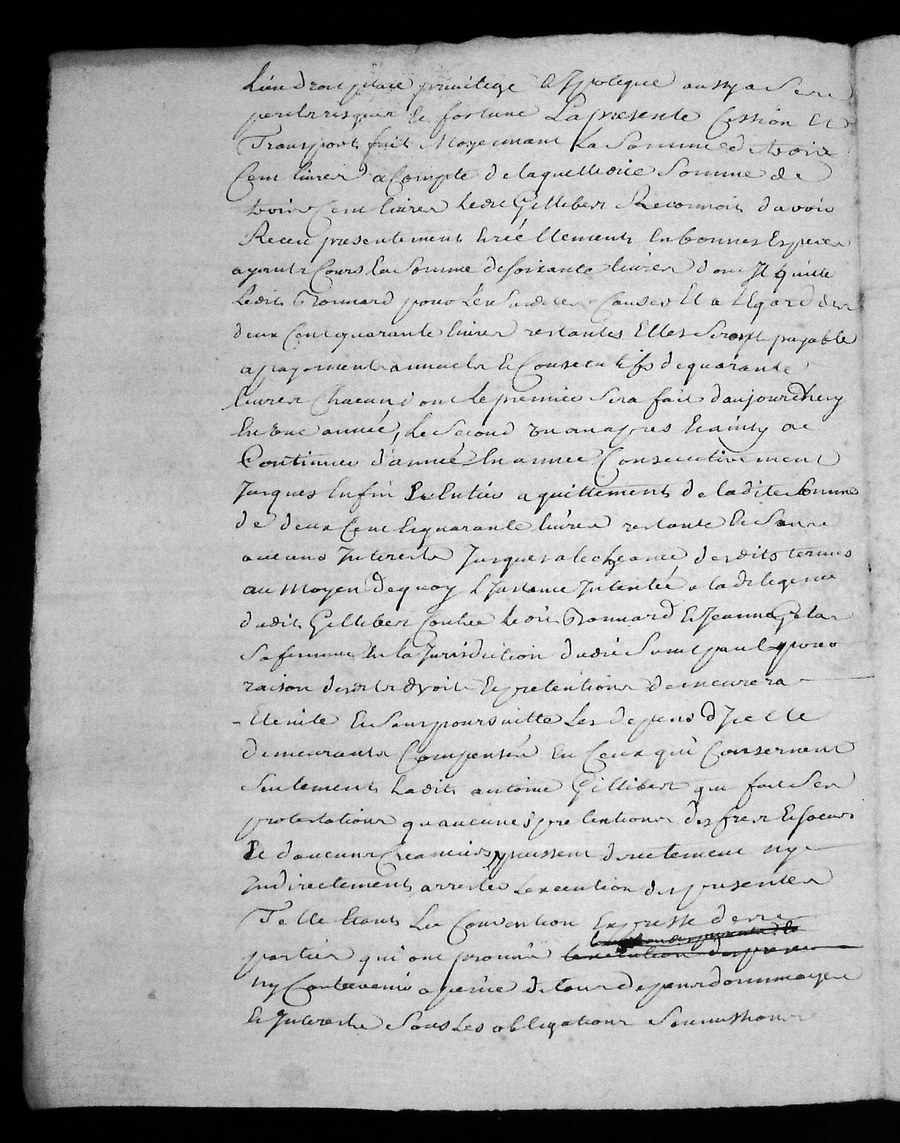 Lieu droit place privilege et hypoteque aussy a Ses
perils risques et fortune La presente Cession et
Transport fait Moyennant La Somme de trois
Cent livres a Compte de laquelle dite Somme de
trois Cent livres ledit Gillibert Reconnois d'avoir
Receu presentement et réellement en bonnes Especes
ayants Cours la Somme de soixante livres dont Il quitte
ledit Bonnard pour les susdites Causes Et a l'Egard des
deux Cent quarante livres restantes Elles Seront payable
a payements annuels et Consecutifs de quarante
livres Chacun dont le premier Sera fait d'aujourdhuy
En une année, le Second un an apres Et ainsy de
Continuer d'année En année Consecutivement
Jusques Enfin de Entier aquittement de ladite Somme
de deux Cent Et quarante livres restante Et Sans
aucuns Interests Jusques a lecheance desdits termes
au Moyen de quoy L'Instance Intentée a la diligence
dudit Gillibert Contre ledit Bonnard Et Jeanne
Sa femme En la Jurisdiction dudit Saint paul pour
raison desdits droits Et pretentions demeurera
Eteinte Et Sans poursuitte Les depens d'Icelle
demeurants Compensés En Ceux qui Consernent
Seulement Ledit antoine Gillibert qui fait Ses
protestations quaucunes pretentions des freres Et soeurs
Et d'aucuns Creanciers puissent directement ny
Indirectement arrester L'execution des presentes
Telle Etant La Convention Expresse des
parties qui ont promis
ny Contrevenir a peine de tous depens dommages
Et Interests Sous Les obligations Soumissions